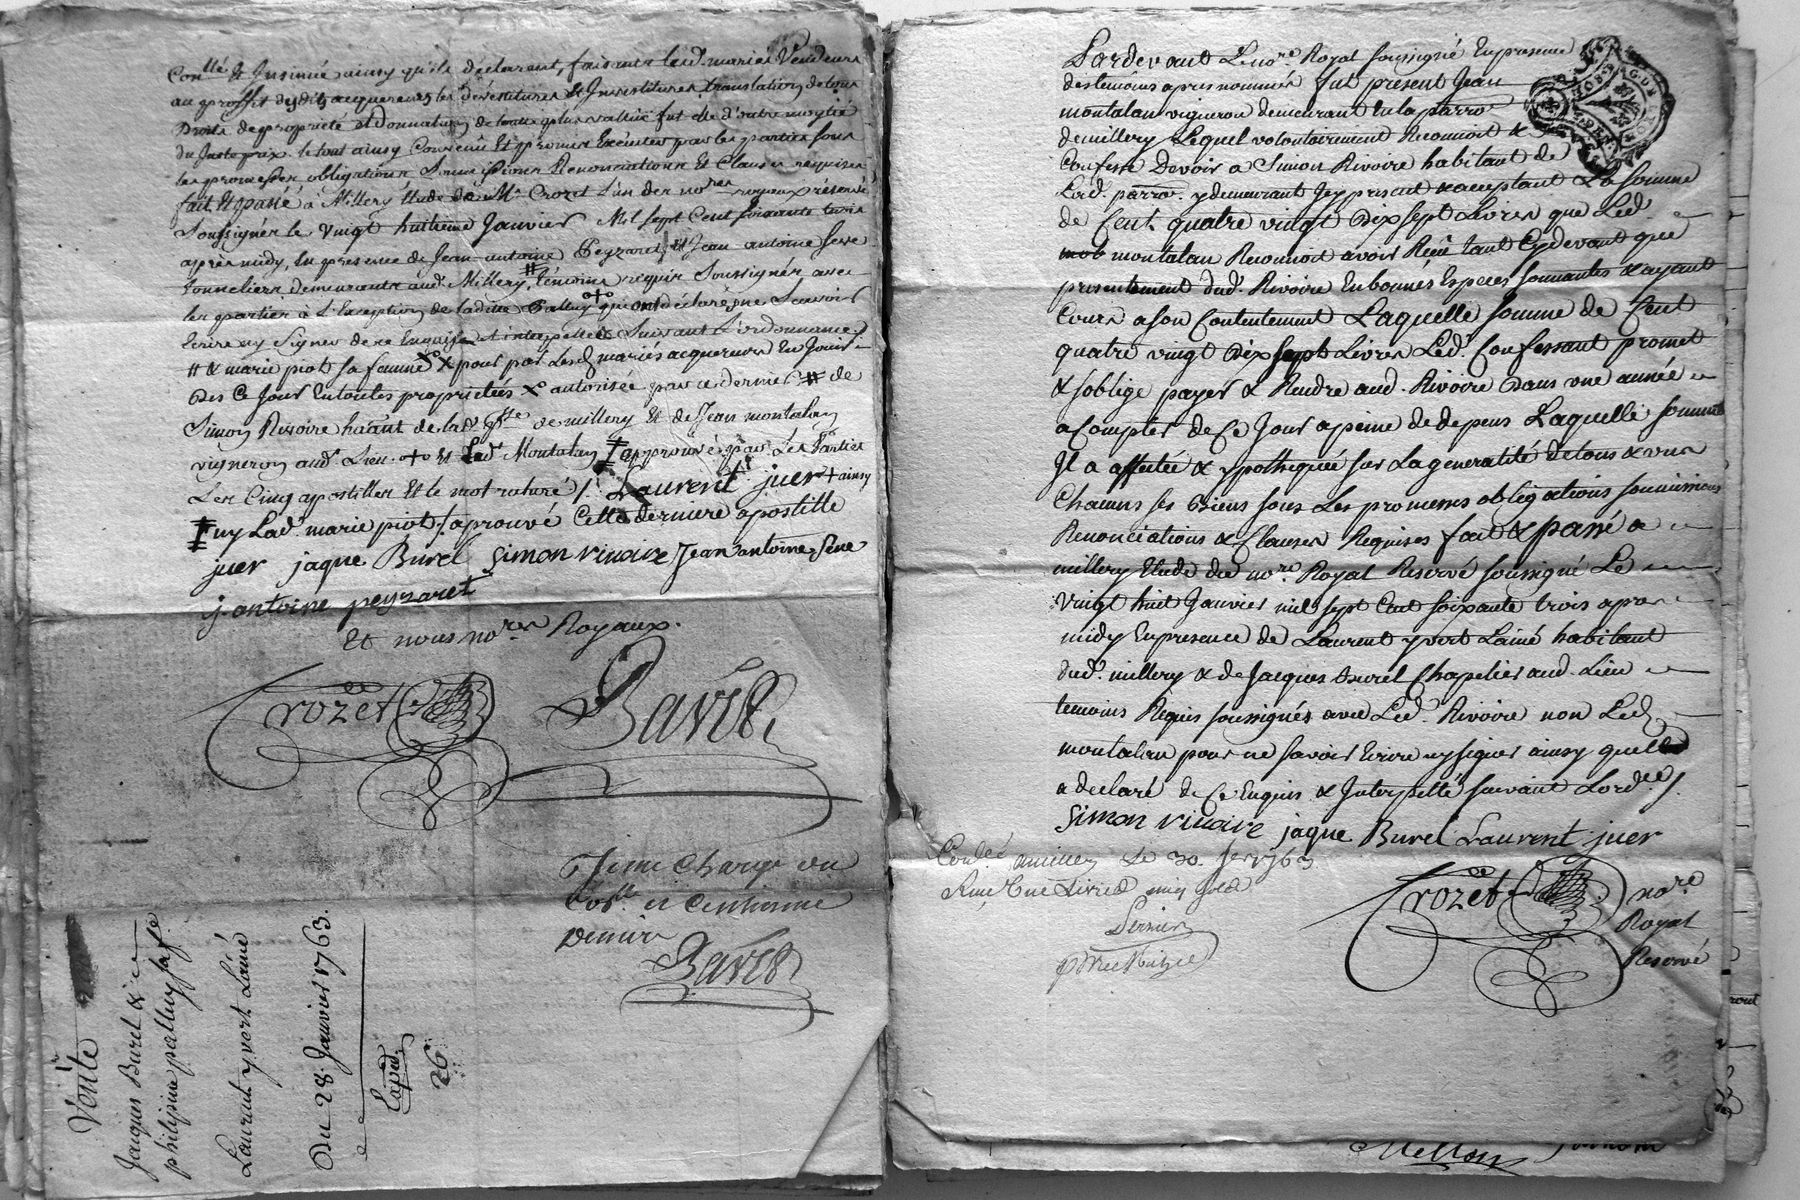 Con.lle & Insinué ainsy qu'ils déclarent, faisants lesd. mariés Vendeurs
au proffit desdits acquereurs les devestitures & Investitures translation de tous
Droits de proprieté et donnation de toutte plus vallüe fut elle d'outre moytié
du Juste prix le tout ainsy Convenû Et promis Exécuter par les parties sous
les promesses obligations Soumissions Renonciations Et Clauses requises
fait Et passé à Millery Etude de Me Crozet L'un des no.res royaux réservé
Soussignés le Vingt huitieme Janvier Mil sept Cent soixante trois
après midy, En presence de Jean antoine Peyzaret, & Jean antoine Sene
Tonneliers demeurants aud. Millery, témoins requis Soussignés avec
les parties à L'Exception de ladite Palluy qui ont déclaré ne Scavoir
Ecrire ny Signer de ce Enquise et interpellée Suivant L'ordonnance./.
# & marie piot sa femme X pour par Lesd. mariés acquereurs En Jouir
Des Ce Jour En toutes proprietés X autorisée par ce dernier # de
Simon Rivoire ha.ant de lad. p.sse de millery Et de Jean montalan
vigneron aud. Lieu. + & Led. Montalan ‡ approuvé par Les Parties
Les Cinq apostilles Et le mot raturé /. Laurent juer + ainsy
‡ ny Lad. marie piot./. aprouvé Cette derniere apostille
juer jaque Burel Simon rivoire Jean antoine Sene
j. antoine peyzaret
Et nous no.res Royaux.
Crozet Bavet
Bavet
Vente
Jacques Burel &
philipine palluy sa fe
Laurent yvert Lainé
Du 28 Janvier 1763.
Expéd.
26
Pardevant Le no.re Royal soussigné En presence
des temoins apres nommés fut present Jean
montalan vigneron demeurant en la parro.
de millery Lequel volontairement Reconnoit &
Confesse Devoir a Simon Rivoire habitant de
Lad. parro. y demeurant Icy present & acceptant La somme
de Cent quatre vingt Dix sept Livres que Led.
montalan Reconnoit avoir Reçu tant Cydevant que
presentement dud. Rivoire En bonnes Especes sonnantes & ayant
Cours a son Contentement Laquelle somme de Cent
quatre vingt Dix sept Livres Led. Confessant promet
& soblige payer & Rendre aud. Rivoire Dans une année
a Compter de Ce Jour a peine de depens Laquelle somme
Il a affectée & ypothequée sur La generalité de tous & uns
Chacuns ses Biens sous Les promesses obligations soumissions
Renonciations & Clauses Requises fait & passé a
millery Etude du no.re Royal Reservé soussigné Le
Vingt huit Janvier mil sept Cent soixante trois apres
midy En presence de Laurent yvert Lainé habitant
dud. millery & de Jacques Burel Chapelier aud. Lieu
temoins Requis soussignés avec Led. Rivoire non Led.
montalan pour ne savoir Ecrire ny signer ainsy quil
a declaré de Ce Enquis & Interpellé suivant Lord.ce /.
Simon rivoire jaque Burel Laurent juer
a millery Le 30. Jer 1763
Crozet no.re
Royal
Reservé